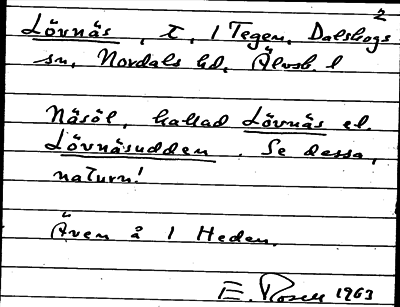 2
Lövnäs, t, 1 Tegen, Dalskogs
sn, Nordals hd, Älvsb. l
Näsöl, kallad Lövnäs el.
Lövnäsudden. Se dessa,
naturn!
Även å 1 Heden.
E. Rosell 1963